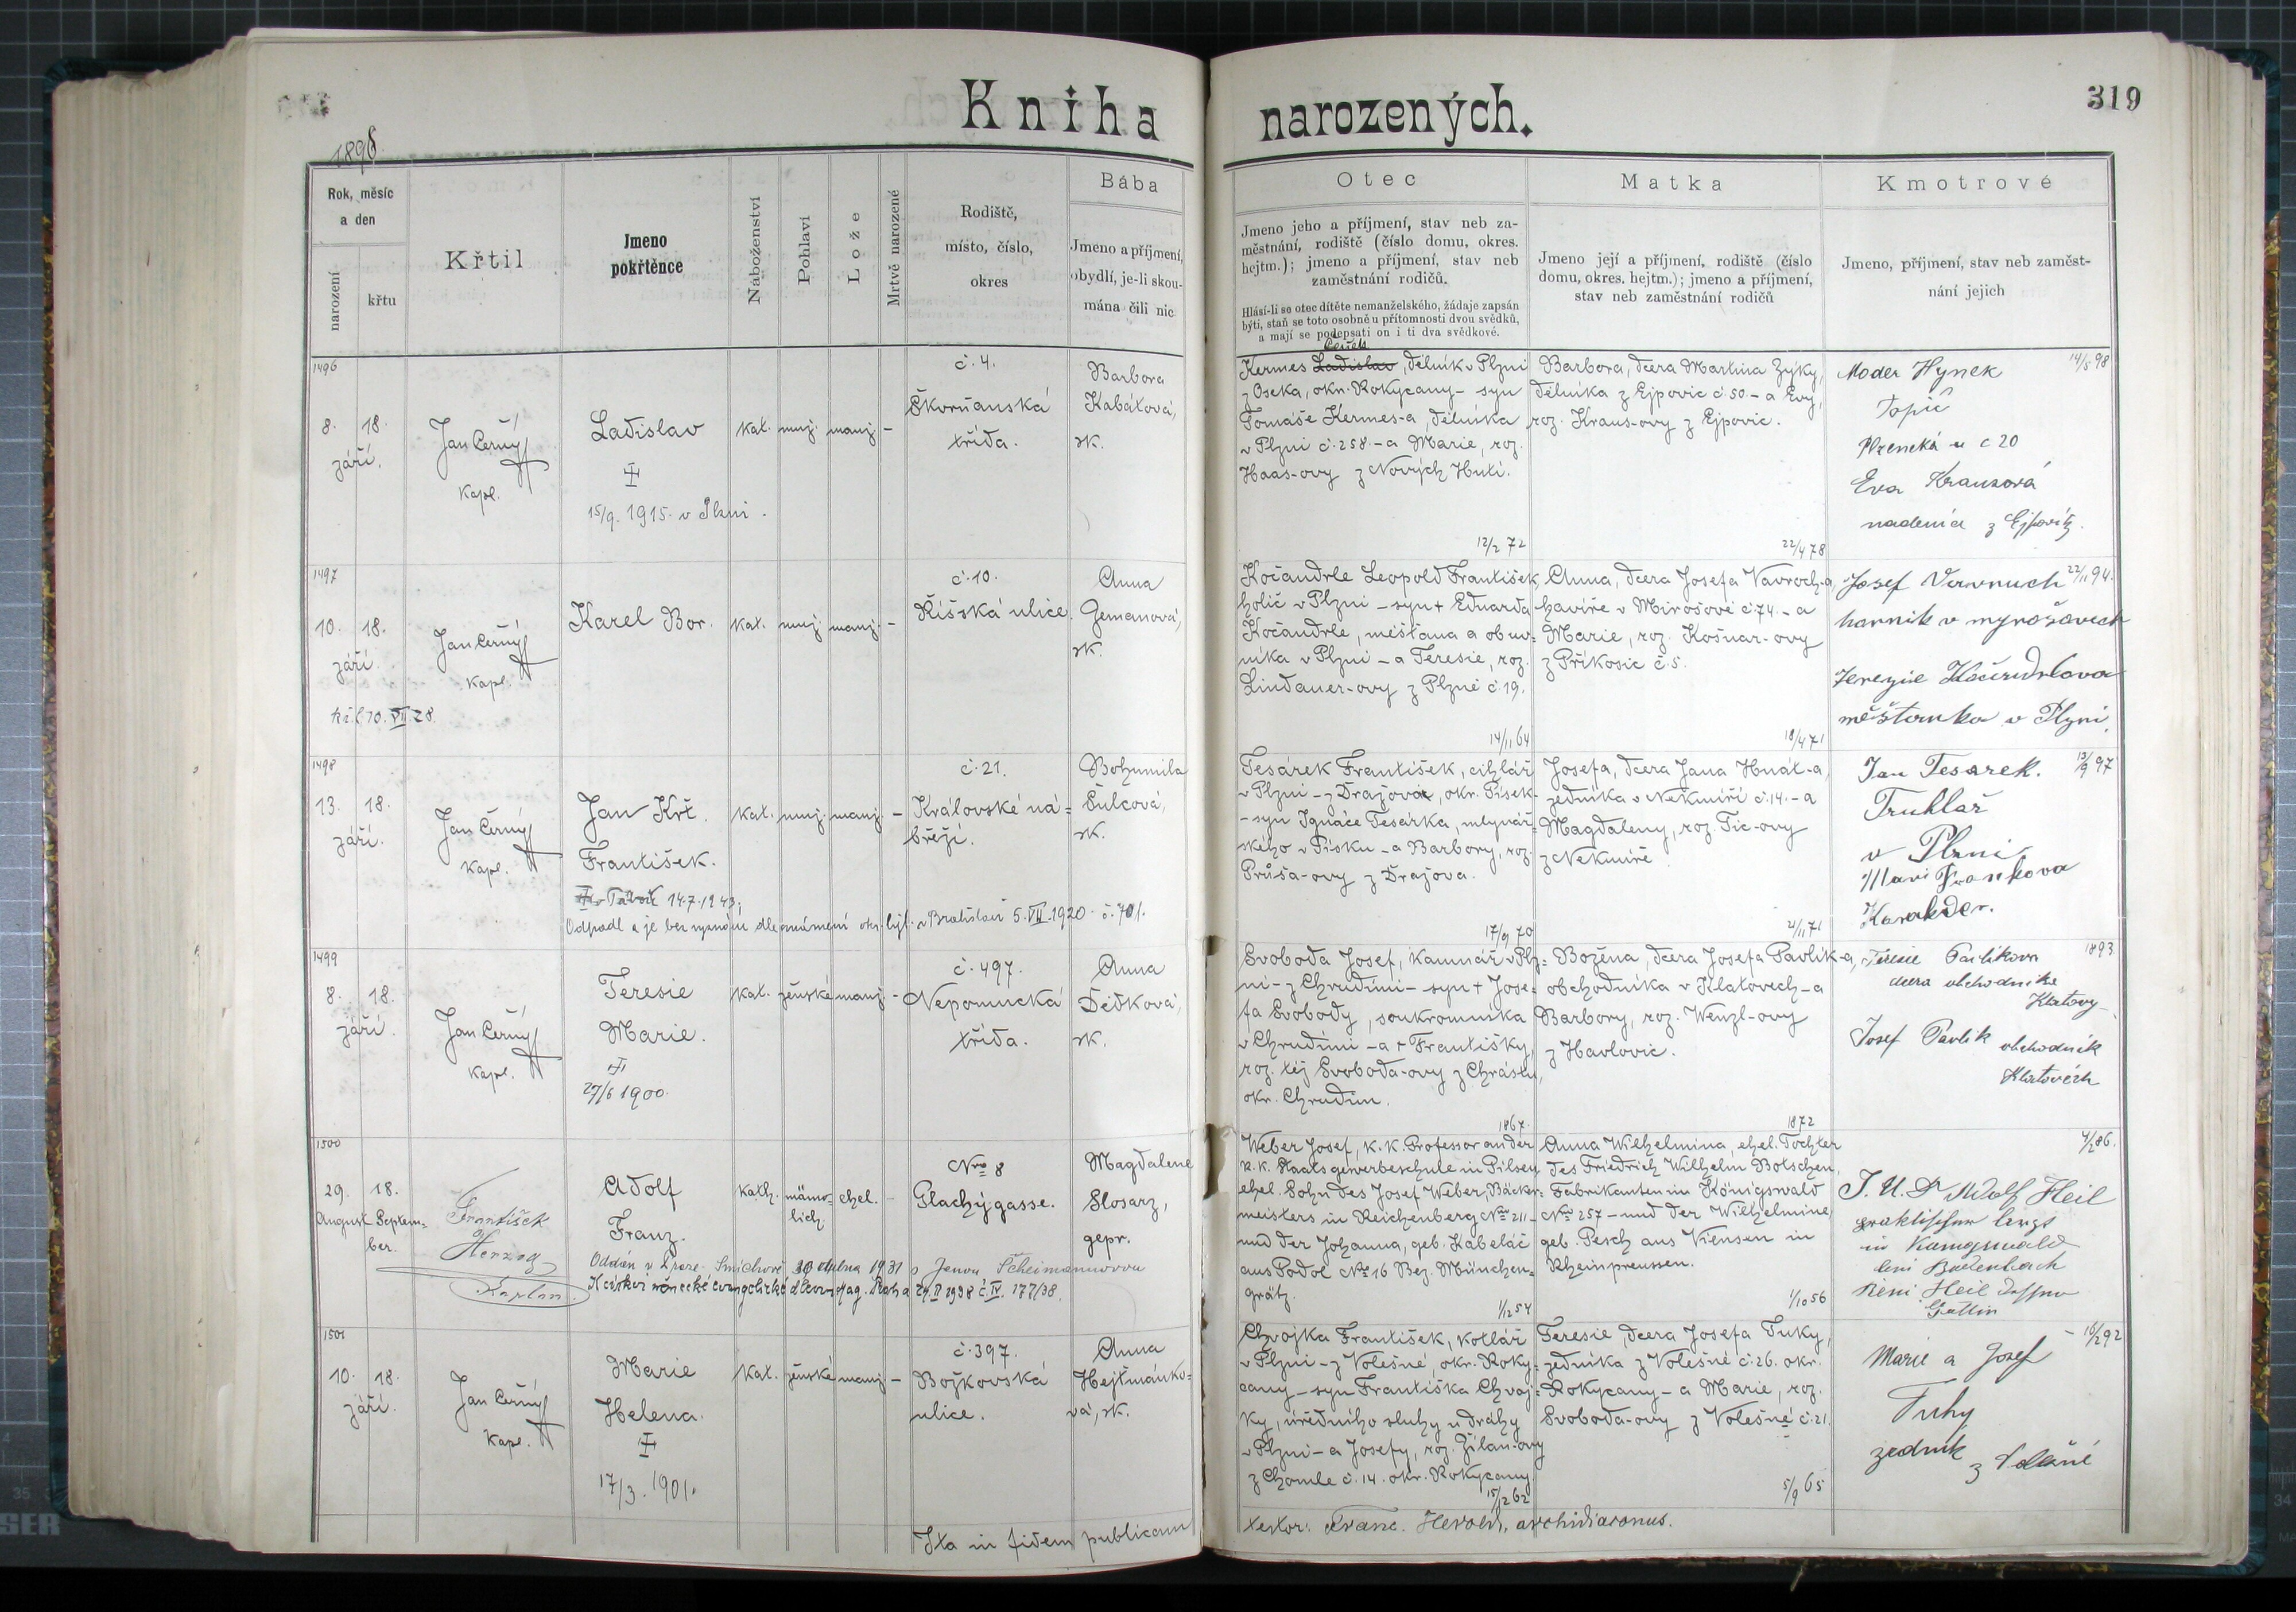 Kniha narozených.
319
1898
Rok, měsíc a den
narození
křtu
Křtil
Jmeno pokřtěnce
Náboženství
Pohlaví
Lože
Mrtvě narozené
Rodiště,
místo, číslo,
okres
Bába
Jmeno a příjmení,
obydlí, je-li skou-
mána čili nic
Otec
Jmeno jeho a příjmení, stav neb za-
městnání, rodiště (číslo domu, okres.
hejtm.); jmeno a příjmení, stav neb
zaměstnání rodičů.
Hlásí-li se otec dítěte nemanželského, žádaje zapsán
býti, staň se toto osobně u přítomnosti dvou svědků,
a mají se podepsati on i ti dva svědkové.
Matka
Jmeno její a příjmení, rodiště (číslo
domu, okres. hejtm.); jmeno a příjmení,
stav neb zaměstnání rodičů
Kmotrové
Jmeno, příjmení, stav neb zaměst-
nání jejich
1496
8. 18.
září.
Jan Černý
Kapl.
Ladislav
15/9. 1915. v Plzni.
kat. muž. manž. –
č. 4.
Škorňanská
třída.
Barbora
Kabátová,
zk.
Kermes Ladislav, dělník v Plzni
z Oseka, okr. Rokycany – syn
Tomáše Kermes-a, dělníka
v Plzni č. 258. – a Marie, roz.
Haas-ovy z Nových Hutí.
12/2 72
Barbora, dcera Martina Zýky,
dělníka z Ejpovic č. 50. – a Evy,
roz. Kraus-ovy z Ejpovic.
22/4 78
14/5 98
Moder Hynek
Topič
Plzenská u c 20
Eva Krausová
nadenice z Ejpovitz.
1497
10. 18.
září.
Jan Černý
Kapl.
Karel Bor.
kat. muž. manž. –
č. 10.
Říšská ulice.
Anna
Gemanová,
zk.
Kočandrle Leopold František,
holič v Plzni – syn + Eduarda
Kočandrle, měšťana a obuv-
níka v Plzni – a Teresie, roz.
Lindauer-ovy z Plzně č. 19.
14/11 64
Anna, dcera Josefa Vavroch-a,
havíře v Mirošově č. 74. – a
Marie, roz. Košnar-ovy
z Příkosic č. 5.
18/4 71
22/11 94.
Josef
harnik v myrošovech
Terezie
měštanka v Plzni.
1498
13. 18.
září.
Jan Černý
Kapl.
Jan Křt.
František.
14.7.1943;
Odpadl a je bez vyznání dle oznámení v Bratislavě 5. VII. 1920. č. 701.
kat. muž. manž. –
č. 21.
Královské ná-
břeží.
Bohumila
Šulcová,
zk.
Tesárek František, cihlář
v Plzni – z Dražova, okr. Písek
– syn Ignáce Tesárka, mlynář-
ského v Písku – a Barbory, roz.
Průša-ovy z Dražova.
17/9 70
Josefa, dcera Jana Hnát-a,
zedníka v Nekmíři č. 14. – a
Magdaleny, roz. Tic-ovy
z Nekmíře
21/11 71
13/9 97
Jan Tesarek.
Truhlař
v Plzni
1499
8. 18.
září.
Jan Černý
Kapl.
Teresie
Marie.
27/6 1900.
kat. ženské manž. –
č. 497.
Nepomucká
třída.
Anna
Dědková,
zk.
Svoboda Josef, kamnář v Plz-
ni – z Chrudimi – syn + Jose-
fa Svobody, soukromníka
v Chrudimi – a + Františky,
roz. též Svoboda-ovy z Chrástu,
okr. Chrudim.
1867.
Božena, dcera Josefa Pavlík-a,
obchodníka v Klatovech – a
Barbory, roz. Wenzl-ovy
z Havlovic.
1872
1893
Teresie Pavlíkova
dcera obchodníka
Klatovy
Josef Pavlik obchodník
Klatovéch
1500
29. 18.
August Septem-
ber.
František
Herzog
Kaplan
Adolf
Franz.
Oddán v Praze - Smíchově 30 dubna 1931 s Janou Scheimannovou
kath. männ-
lich. ehel. –
Nro 8
Plachýgasse.
Magdalene
Slosarz,
gepr.
Weber Josef, k. k. Professor an der
k. k. Staatsgewerbeschule in Pilsen,
ehel. Sohn des Josef Weber, Bäcker-
meisters in Reichenberg Nro 211 –
und der Johanna, geb. Kabeláč
aus Podol Nro 16 Bez. München-
grätz.
1/12 54
Anna Wilhelmina, ehel. Tochter
des Friedrich Wilhelm Botschen,
Fabrikanten in Königswald
Nro 257 – und der Wilhelmine,
geb. Pesch aus Viensen in
Rheinpreussen.
1/10 56
4/2 86.
J. U. Dr Adolf Heil
in Königswald
bei Bodenbach
Heil dessen
Gattin
1501
10. 18.
září.
Jan Černý
Kapl.
Marie
Helena.
17/3. 1901.
kat. ženské manž. –
č. 397.
Božkovská
ulice.
Anna
Hejtmánko-
vá, zk.
Chvojka František, kotlář
v Plzni – z Volešné, okr. Roky-
cany – syn Františka Chvoj-
ky, úředního sluhy u dráhy
v Plzni – a Josefy, roz. Žilan-ovy
z Chomle č. 14. okr. Rokycany.
15/12 62
Teresie, dcera Josefa Tuky,
zedníka z Volešné č. 26. okr.
Rokycany – a Marie, roz.
Svoboda-ovy z Volešné č. 21.
5/9 65
16/2 92
Marie a Josef
Tuhy
zedník z Volešné
Ita in fidem publicam
testor: Franc. Herold, archidiaconus.